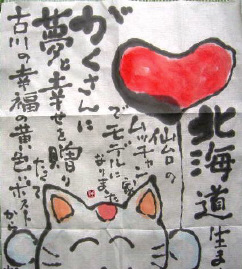 北海道生まれ
仙台の
ムッチャン家
でモデルに
なりました
がくさんに
夢と幸せを贈り
たくて
古川の幸福の黄色いポスト
から